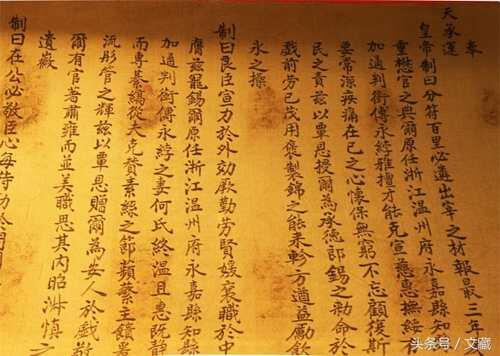 奉
天承運
皇帝制曰分符百里必遴出宰之材報最三年
重懋官之典爾原任浙江温州府永嘉縣知
加通判銜傅永綍雅擅才能克宣慈惠撫綏
要常深疾痛在己之心懷保無窮不忘顧復斯
民之責兹以覃恩授爾為承德郎錫之勅命於
戲前勞已茂用褒製錦之能来軫方遒益勵飲
氷之操
制曰良臣宣力於外効厥勤勞賢媛襄職於中
膺兹寵錫爾原任浙江温州府永嘉縣知縣
加通判銜傅永綍之妻何氏終温且惠既静
而專綦縞從夫克贊素絲之節蘋蘩主饋
流彤管之輝兹以覃恩贈爾為安人於戲敬
爾有官著肅雍而並美職思其内昭淋慎之
遺徽
制曰在公必敬臣心每待勤於
头条号 / 文藏